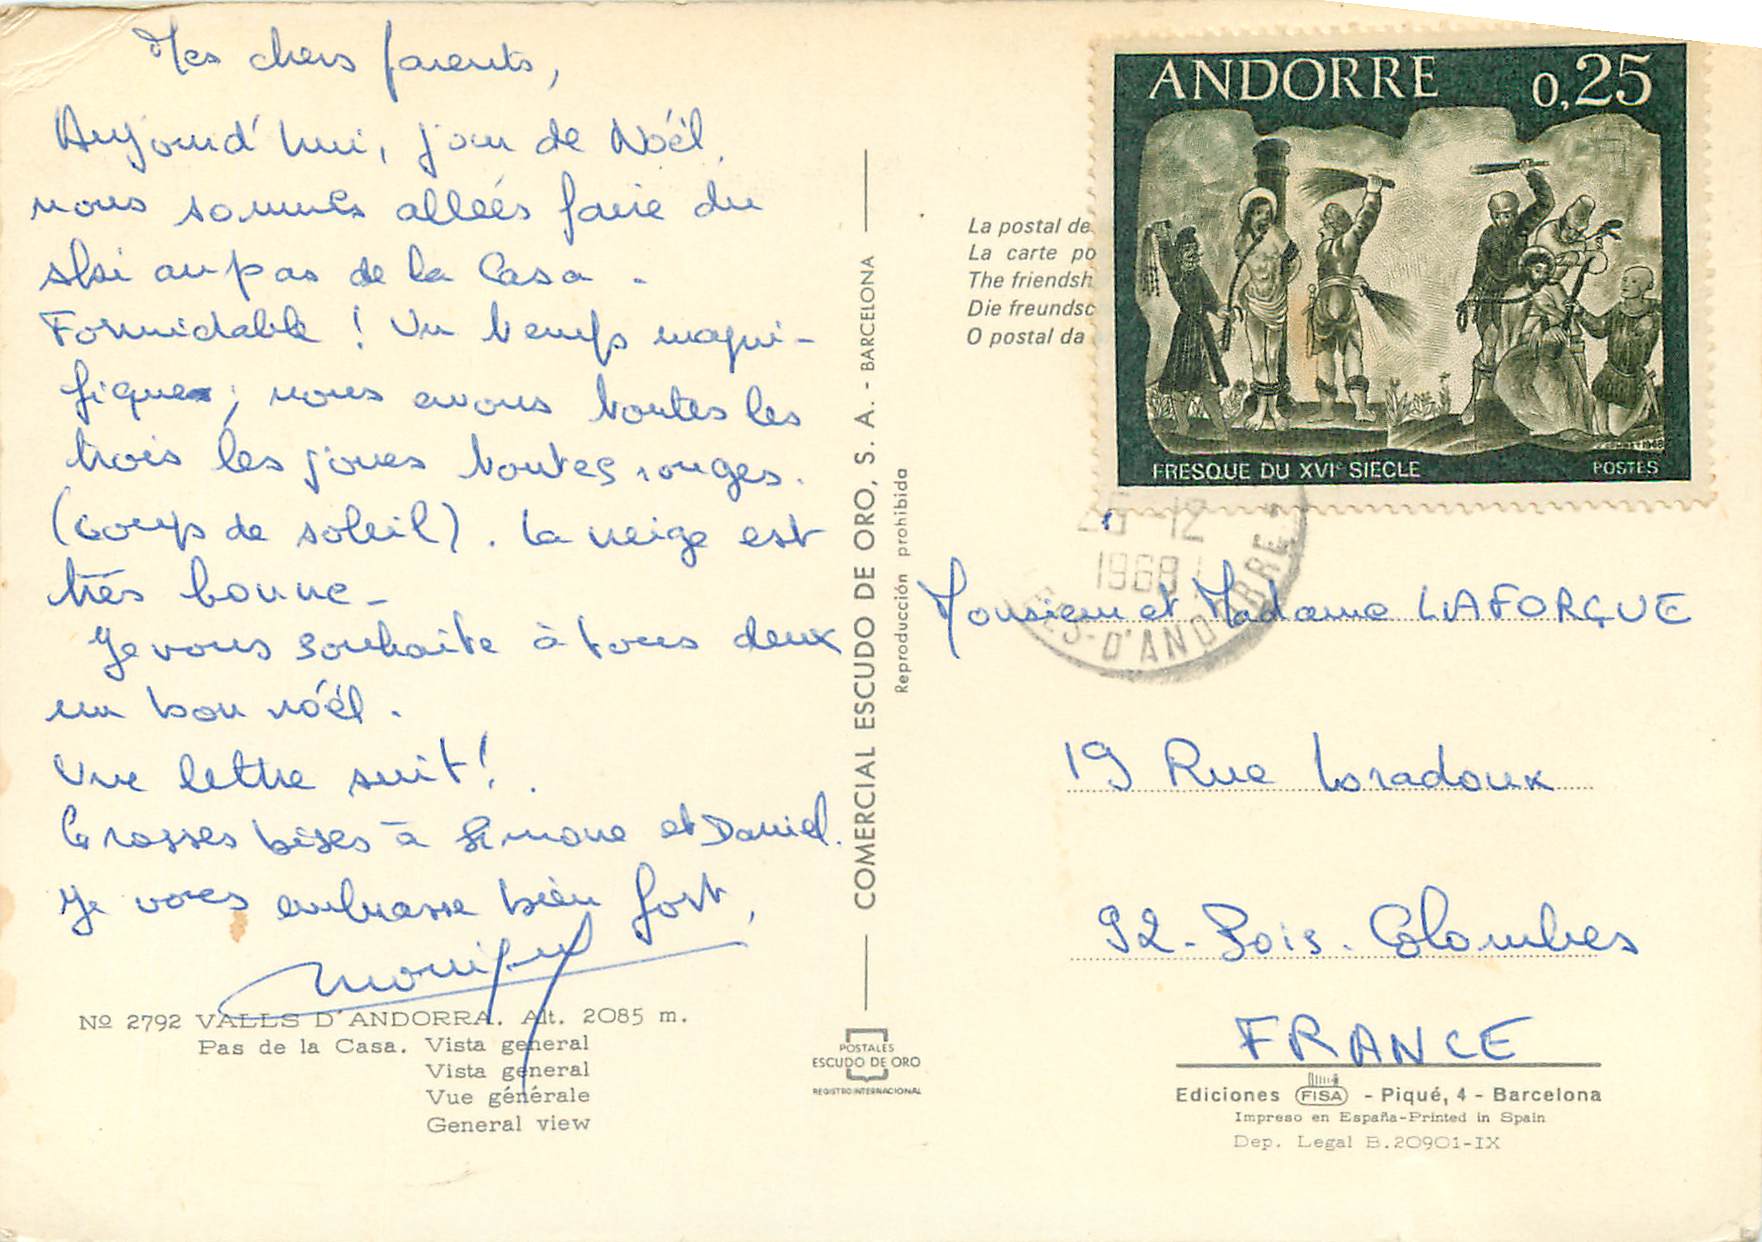 Mes chers parents,
Aujourd'hui, jour de Noël,
nous sommes allées faire du
ski au pas de la Casa.
Formidable ! Un temps magni-
fique ; nous avons toutes les
trois les joues toutes rouges.
(coup de soleil). La neige est
très bonne_
Je vous souhaite à tous deux
un bon noël.
Une lettre suit !.
Grosses bises à Simone et Daniel.
Je vous embrasse bien fort,
Monique
Nº 2792 VALLS D'ANDORRA. Alt. 2085 m.
Pas de la Casa. Vista general
Vista general
Vue générale
General view
COMERCIAL ESCUDO DE ORO, S. A. - BARCELONA
Reproducción prohibida
POSTALES
ESCUDO DE ORO
REGISTRO INTERNACIONAL
La postal de
La carte po
The friendsh
Die freundsc
O postal da
ANDORRE 0,25
FRESQUE DU XVIe SIECLE POSTES
-12
1968
ES-D'ANDORRE
Monsieur et Madame LAFORGUE
19 Rue Loradoux
92-Bois-Colombes
FRANCE
Ediciones FISA - Piqué, 4 - Barcelona
Impreso en España-Printed in Spain
Dep. Legal B.20901-IX